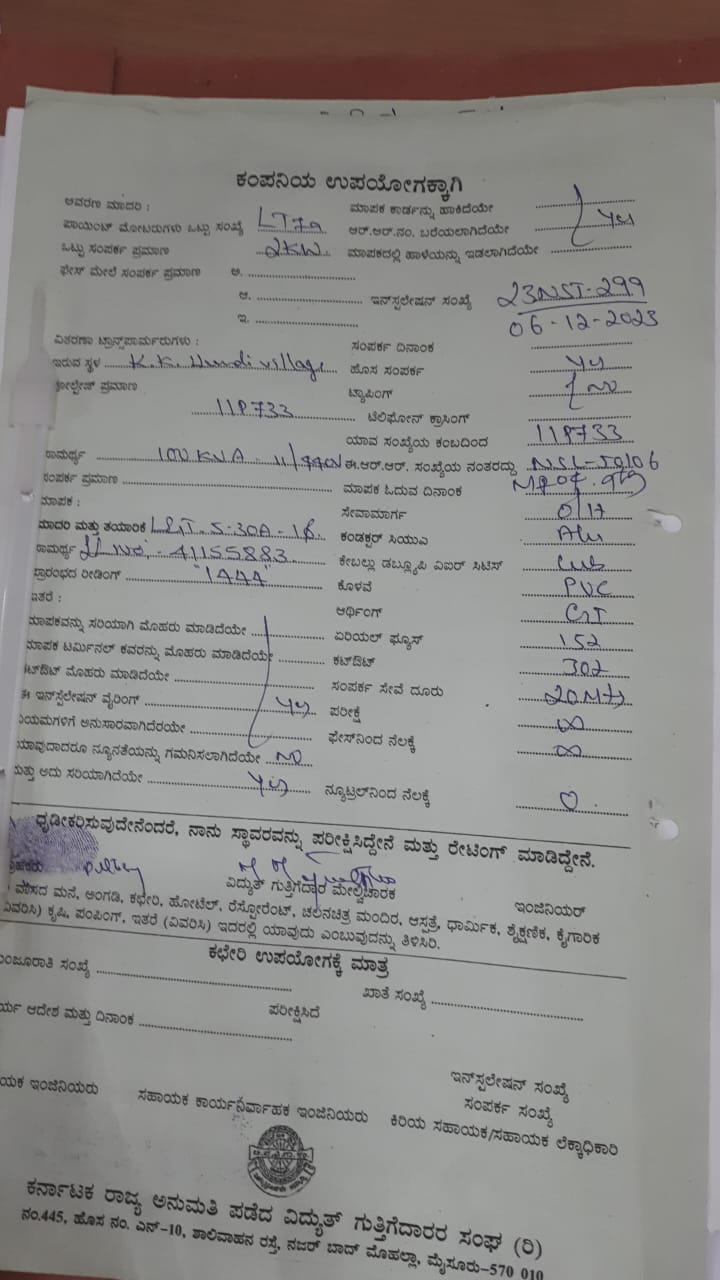 ಕಂಪನಿಯ ಉಪಯೋಗಕ್ಕಾಗಿ
ಆವರಣ ಮಾದರಿ : LT7a ಮಾಪಕ ಕಾರ್ಡನ್ನು ಹಾಕಿದೆಯೇ
ಪಾಯಿಂಟ್ ಮೋಟರುಗಳು ಒಟ್ಟು ಸಂಖ್ಯೆ ಆರ್.ಆರ್.ನಂ. ಬರೆಯಲಾಗಿದೆಯೇ Yes
ಒಟ್ಟು ಸಂಪರ್ಕ ಪ್ರಮಾಣ 2KW ಮಾಪಕದಲ್ಲಿ ಹಾಳೆಯನ್ನು ಇಡಲಾಗಿದೆಯೇ
ಫೇಸ್ ಮೇಲೆ ಸಂಪರ್ಕ ಪ್ರಮಾಣ ಅ.
ಆ. ಇನ್‌ಸ್ಟಲೇಷನ್ ಸಂಖ್ಯೆ 23NST-299
ಇ. 06-12-2023
ವಿತರಣಾ ಟ್ರಾನ್ಸ್‌ಫಾರ್ಮರುಗಳು : ಸಂಪರ್ಕ ದಿನಾಂಕ
ಇರುವ ಸ್ಥಳ K.K. Hundi village ಹೊಸ ಸಂಪರ್ಕ Yes
ವೋಲ್ಟೇಜ್ ಪ್ರಮಾಣ ಟ್ಯಾಪಿಂಗ್ No
118733 ಟೆಲಿಫೋನ್ ಕ್ರಾಸಿಂಗ್
ಯಾವ ಸಂಖ್ಯೆಯ ಕಂಬದಿಂದ 118733
ಸಾಮರ್ಥ್ಯ 100 KVA - 11/440V ಈ.ಆರ್.ಆರ್. ಸಂಖ್ಯೆಯ ನಂತರದ್ದು NSL-50106
ಸಂಪರ್ಕ ಪ್ರಮಾಣ ಮಾಪಕ ಓದುವ ದಿನಾಂಕ
ಮಾಪಕ : ಸೇವಾಮಾರ್ಗ O/H
ಮಾದರಿ ಮತ್ತು ತಯಾರಿಕೆ L&T. 5-30A-1Φ. ಕಂಡಕ್ಟರ್ ಸಿಯುವಿ Alu
ಸಾಮರ್ಥ್ಯ Sl No: - 41155883 ಕೇಬಲ್ಲು ಡಬ್ಲ್ಯೂಪಿ ವಿಐರ್ ಸಿಟಿಸ್ Cub
ಪ್ರಾರಂಭದ ರೀಡಿಂಗ್ "1444" ಕೊಳವೆ PVC
ಇತರೆ : ಆರ್ಥಿಂಗ್ GI
ಮಾಪಕವನ್ನು ಸರಿಯಾಗಿ ಮೊಹರು ಮಾಡಿದೆಯೇ ಏರಿಯಲ್ ಫ್ಯೂಸ್ 152
ಮಾಪಕ ಟರ್ಮಿನಲ್ ಕವರನ್ನು ಮೊಹರು ಮಾಡಿದೆಯೇ ಕಟ್‌ಔಟ್ 302
ಕಟ್‌ಔಟ್ ಮೊಹರು ಮಾಡಿದೆಯೇ ಸಂಪರ್ಕ ಸೇವೆ ದೂರು 20Mts
ಈ ಇನ್‌ಸ್ಟಲೇಷನ್ ವೈರಿಂಗ್ Yes ಪರೀಕ್ಷೆ ∞
ನಿಯಮಗಳಿಗೆ ಅನುಸಾರವಾಗಿದೆರಯೇ ಫೇಸ್‌ನಿಂದ ನೆಲಕ್ಕೆ ∞
ಯಾವುದಾದರೂ ನ್ಯೂನತೆಯನ್ನು ಗಮನಿಸಲಾಗಿದೆಯೇ No
ಮತ್ತು ಅದು ಸರಿಯಾಗಿದೆಯೇ Yes ನ್ಯೂಟ್ರಲ್‌ನಿಂದ ನೆಲಕ್ಕೆ 0.
ಧೃಡೀಕರಿಸುವುದೇನೆಂದರೆ, ನಾನು ಸ್ಥಾವರವನ್ನು ಪರೀಕ್ಷಿಸಿದ್ದೇನೆ ಮತ್ತು ರೇಟಿಂಗ್ ಮಾಡಿದ್ದೇನೆ.
ಗ್ರಾಹಕರು ವಿದ್ಯುತ್ ಗುತ್ತಿಗೆದಾರ ಮೇಲ್ವಿಚಾರಕ ಇಂಜಿನಿಯರ್
ವಾಸದ ಮನೆ, ಅಂಗಡಿ, ಕಛೇರಿ, ಹೋಟೆಲ್, ರೆಸ್ಟೋರೆಂಟ್, ಚಲನಚಿತ್ರ ಮಂದಿರ, ಆಸ್ಪತ್ರೆ, ಧಾರ್ಮಿಕ, ಶೈಕ್ಷಣಿಕ, ಕೈಗಾರಿಕ
ವಿವರಿಸಿ) ಕೃಷಿ, ಪಂಪಿಂಗ್, ಇತರೆ (ವಿವರಿಸಿ) ಇದರಲ್ಲಿ ಯಾವುದು ಎಂಬುವುದನ್ನು ತಿಳಿಸಿರಿ.
ಕಛೇರಿ ಉಪಯೋಗಕ್ಕೆ ಮಾತ್ರ
ಮಂಜೂರಾತಿ ಸಂಖ್ಯೆ ಖಾತೆ ಸಂಖ್ಯೆ
ರ್ಯ ಆದೇಶ ಮತ್ತು ದಿನಾಂಕ ಪರೀಕ್ಷಿಸಿದೆ
ಇನ್‌ಸ್ಟಲೇಷನ್ ಸಂಖ್ಯೆ
ಸಂಪರ್ಕ ಸಂಖ್ಯೆ
ಯಕ ಇಂಜಿನಿಯರು ಸಹಾಯಕ ಕಾರ್ಯನಿರ್ವಾಹಕ ಇಂಜಿನಿಯರು ಕಿರಿಯ ಸಹಾಯಕ/ಸಹಾಯಕ ಲೆಕ್ಕಾಧಿಕಾರಿ
ಕರ್ನಾಟಕ ರಾಜ್ಯ ಅನುಮತಿ ಪಡೆದ ವಿದ್ಯುತ್ ಗುತ್ತಿಗೆದಾರರ ಸಂಘ (ರಿ)
ನಂ.445, ಹೊಸ ನಂ. ಎನ್-10, ಶಾಲಿವಾಹನ ರಸ್ತೆ, ನಜರ್ ಬಾದ್ ಮೊಹಲ್ಲಾ, ಮೈಸೂರು-570 010